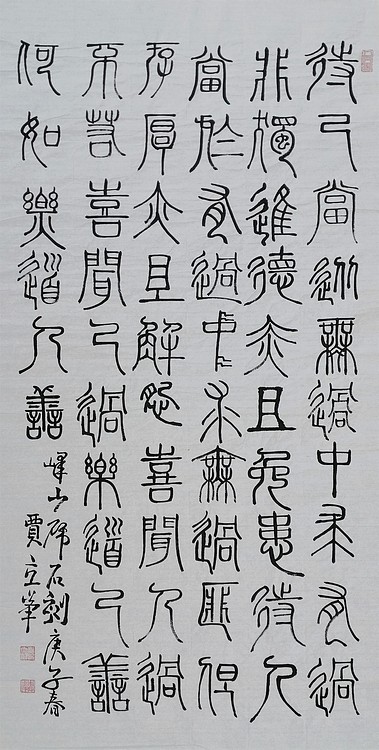 待己當從無過中求有過
非獨進德亦且免患待人
當於有過中求無過匪但
存厚亦且解怨喜聞人過
不若喜聞己過樂道己善
何如樂道人善
嶧山碑石刻庚子春
賈立華